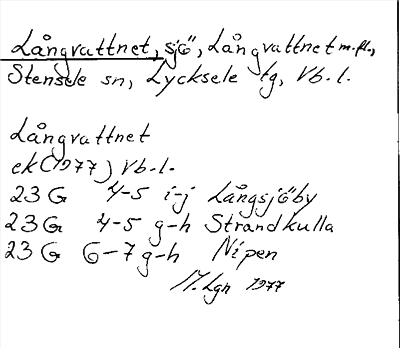 Långvattnet, sjö, Långvattnet m.fl.,
Stensele sn, Lycksele tg, Vb.l.
Långvattnet
ek (1977) Vb.l.
23 G 4-5 i-j Långsjöby
23 G 4-5 g-h Strandkulla
23 G 6-7 g-h Nipen
M.Lgn 1977